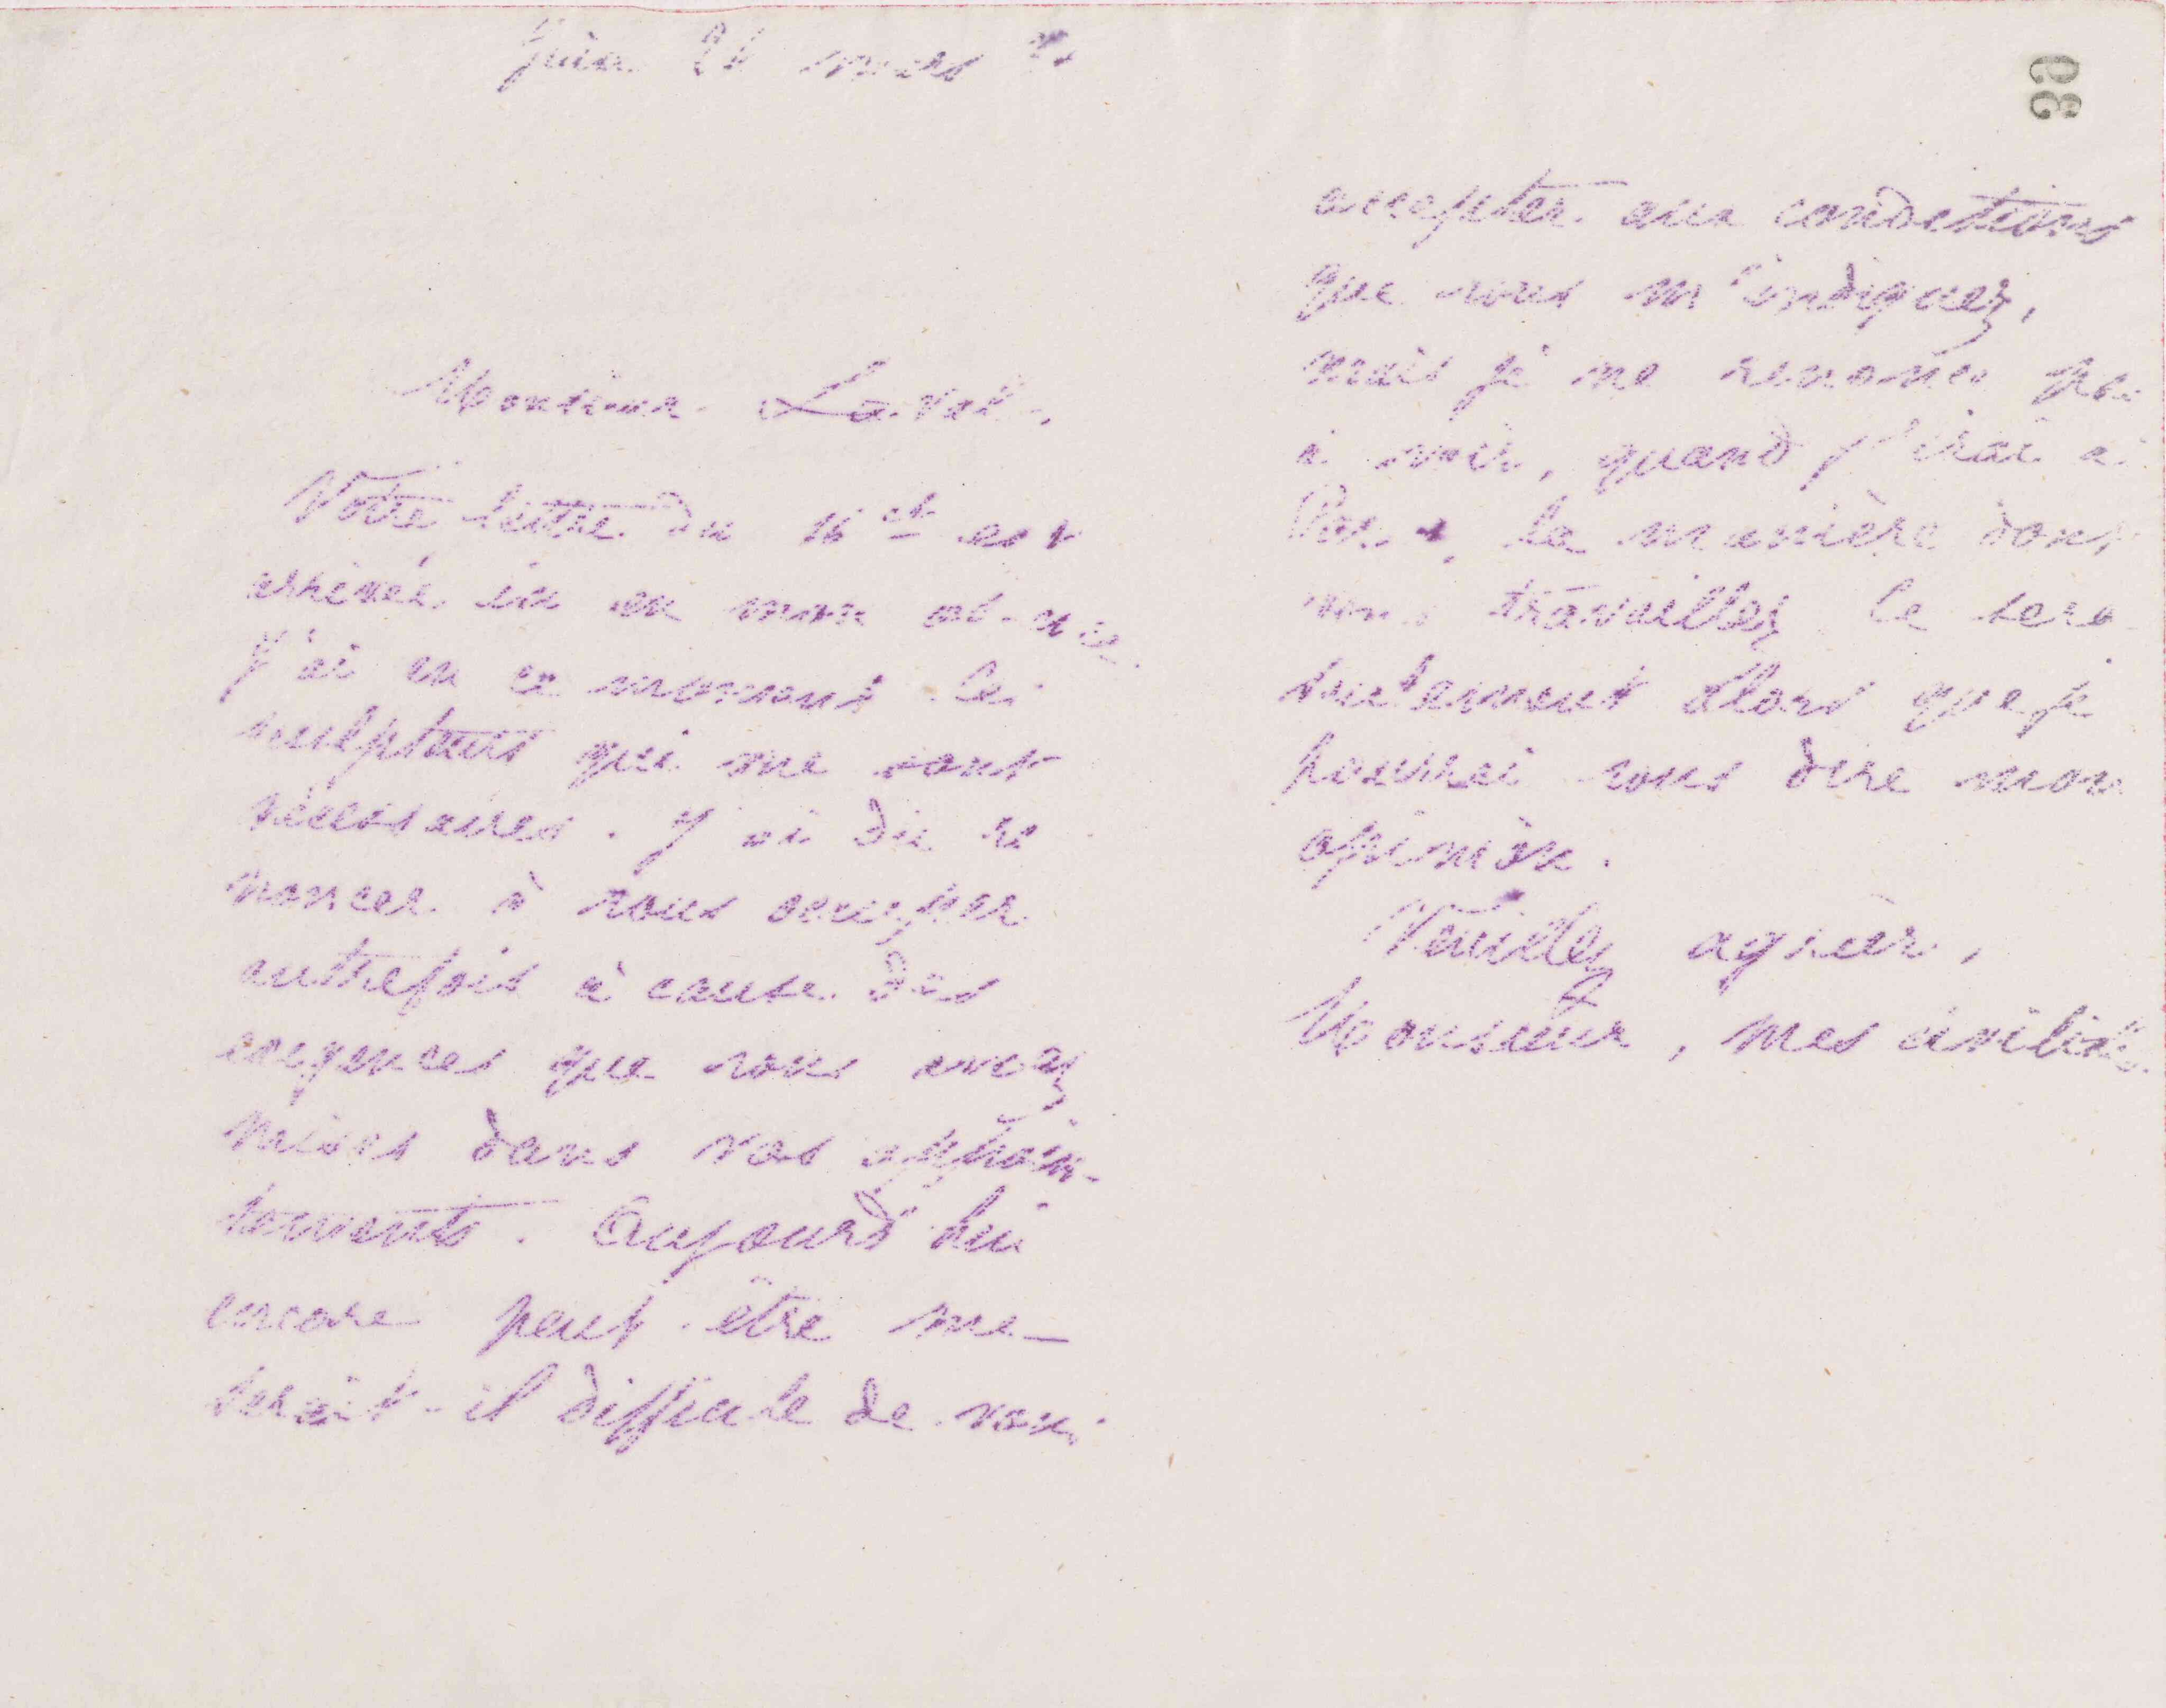 Guise 21 mars
Monsieur Laval,
Votre lettre du 16 ct est
arrivée ici en mon absence.
J'ai en ce moment les
sculpteurs qui me sont
nécessaires. J'ai dû re
noncer à vous occuper
autrefois à cause des
exigences que vous avez
mises dans vos appoin-
tements. Aujourd'hui
encore peut-être me
serait-il difficile de vous
accepter aux conditions
que vous m'indiquez,
mais je ne renonce pas
à voir, quand j'irai à
Paris, la manière dont
vous travaillez. Ce sera
seulement alors que je
pourrai vous dire mon
opinion.
Veuillez agréer,
Monsieur, mes civilités.
39